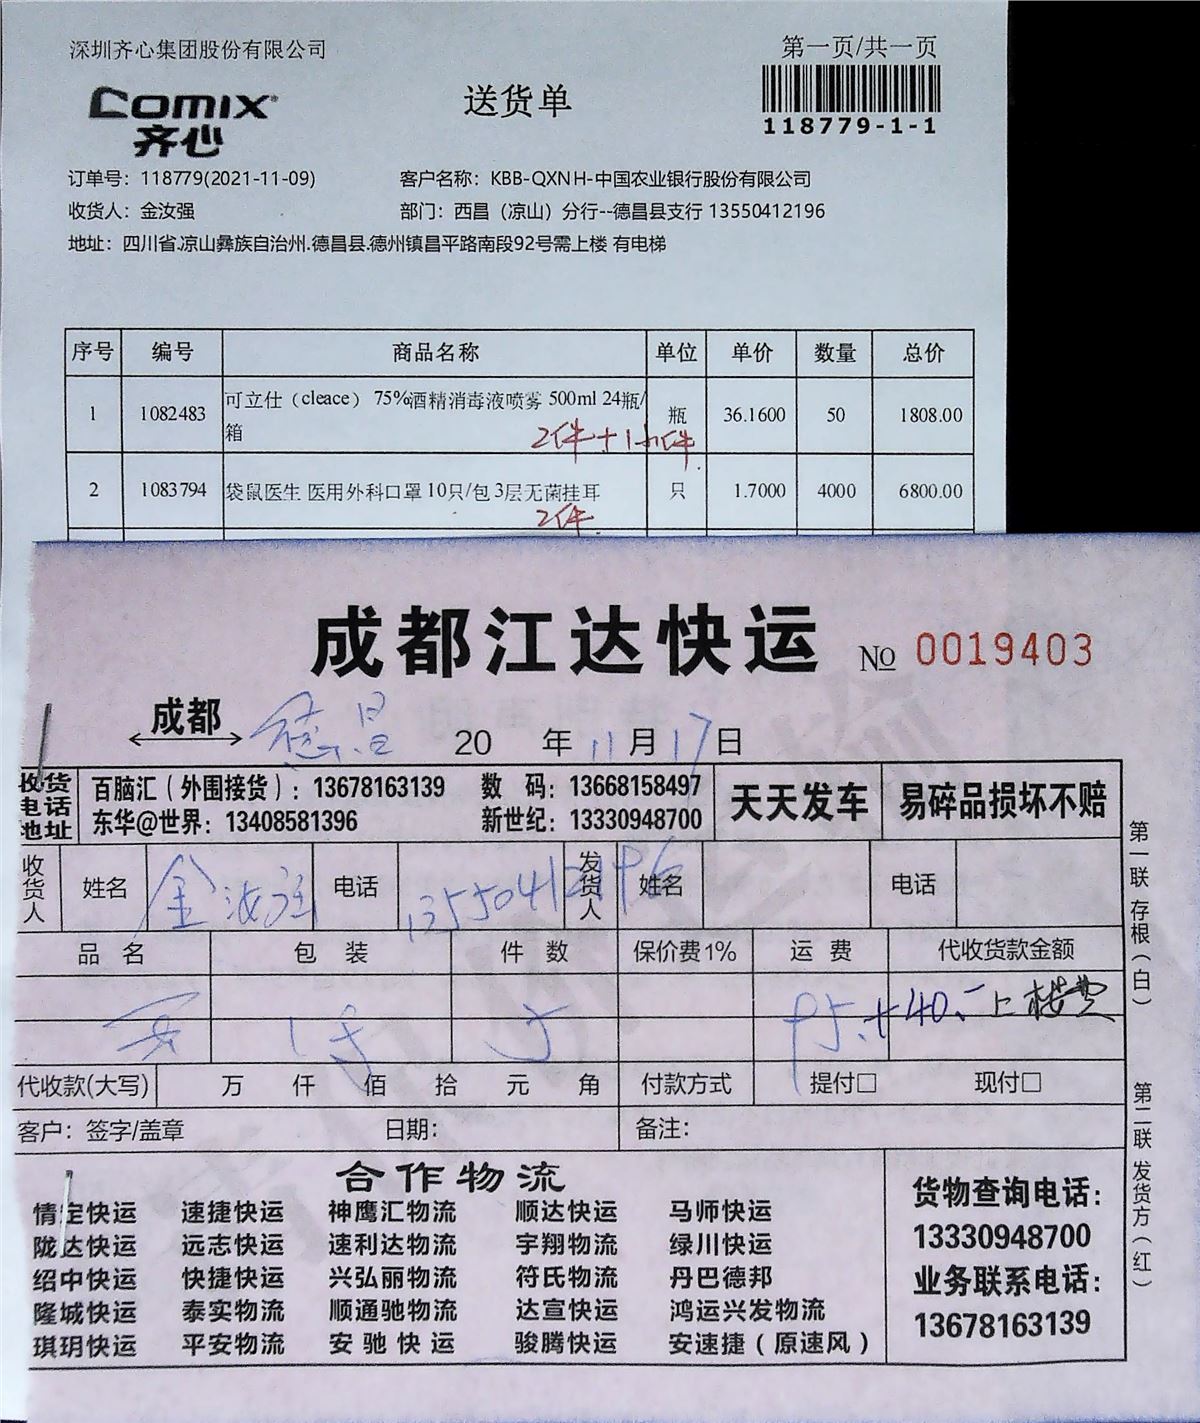 深圳齐心集团股份有限公司
第一页/共一页
Comix
齐心
送货单
118779-1-1
订单号：118779(2021-11-09)
客户名称：KBB-QXNH-中国农业银行股份有限公司
收货人：金汝强
部门：西昌（凉山）分行--德昌县支行 13550412196
地址：四川省.凉山彝族自治州.德昌县.德州镇昌平路南段92号需上楼 有电梯
序号 编号 商品名称 单位 单价 数量 总价
1 1082483 可立仕（cleace） 75%酒精消毒液喷雾 500ml 24瓶/箱 瓶 36.1600 50 1808.00
2件+1小件
2 1083794 袋鼠医生 医用外科口罩 10只/包 3层无菌挂耳 只 1.7000 4000 6800.00
2件
成都江达快运 No 0019403
成都 德昌 20 年 11月17日
收货电话地址 百脑汇（外围接货）：13678163139 数 码：13668158497
东华@世界：13408581396 新世纪：13330948700
天天发车 易碎品损坏不赔
收货人 姓名 金汝强 电话 13550412196 发货人 姓名 电话
品 名 包 装 件 数 保价费1% 运 费 代收货款金额
5 95.+40.- 上楼费
代收款(大写) 万 仟 佰 拾 元 角 付款方式 提付□ 现付□
客户：签字/盖章 日期： 备注：
合作物流
情定快运 速捷快运 神鹰汇物流 顺达快运 马师快运
陇达快运 远志快运 速利达物流 宇翔物流 绿川快运
绍中快运 快捷快运 兴弘丽物流 符氏物流 丹巴德邦
隆城快运 泰实物流 顺通驰物流 达宣快运 鸿运兴发物流
琪玥快运 平安物流 安驰快运 骏腾快运 安速捷（原速风）
货物查询电话：
13330948700
业务联系电话：
13678163139
第一联 存根（白）
第二联 发货方（红）